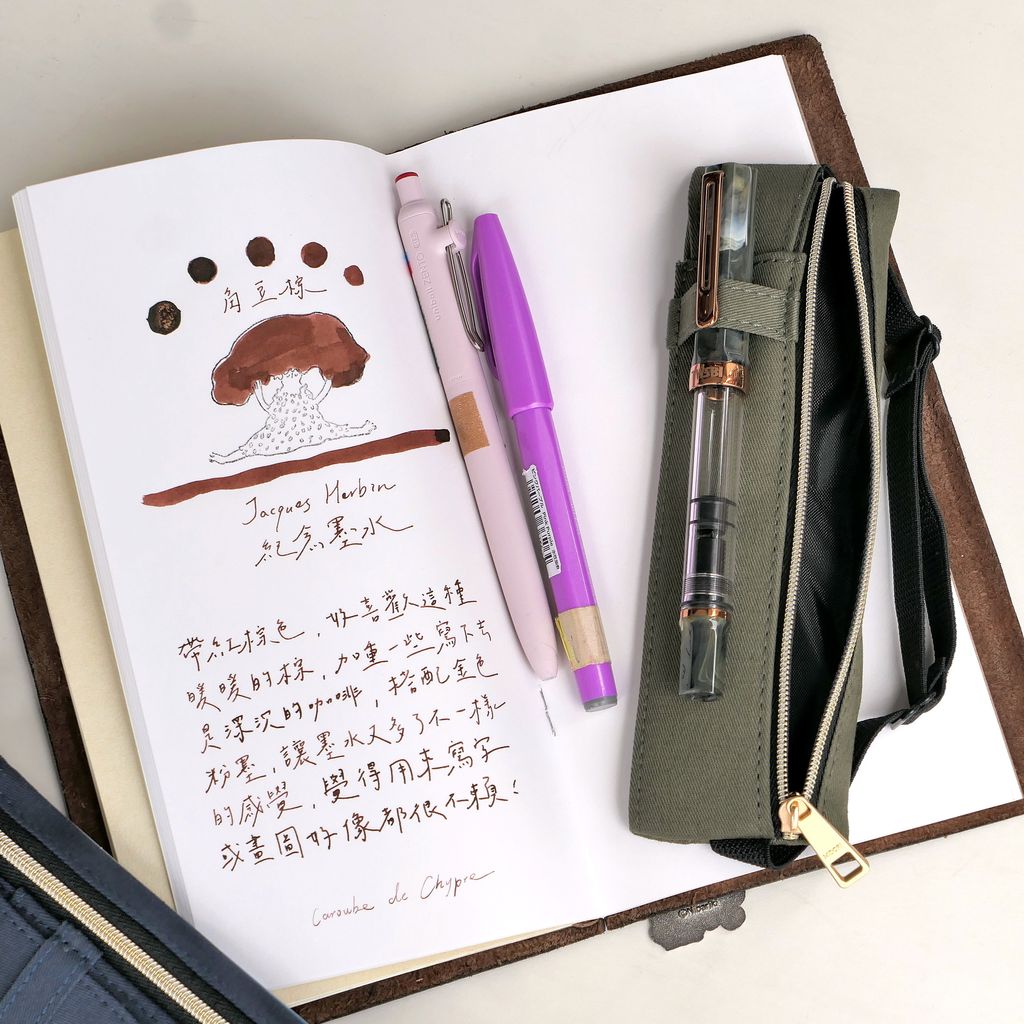 角豆棕
Jacques Herbin
紀念墨水
帶紅棕色，好喜歡這種
暖暖的棕，加重一些寫下去
是深沉的咖啡，搭配金色
粉墨，讓墨水又多了不一樣
的感覺，覺得用來寫字
或畫圖好像都很不賴！
Caroube de Chypre
uni-ball ZENTO
TWSBI